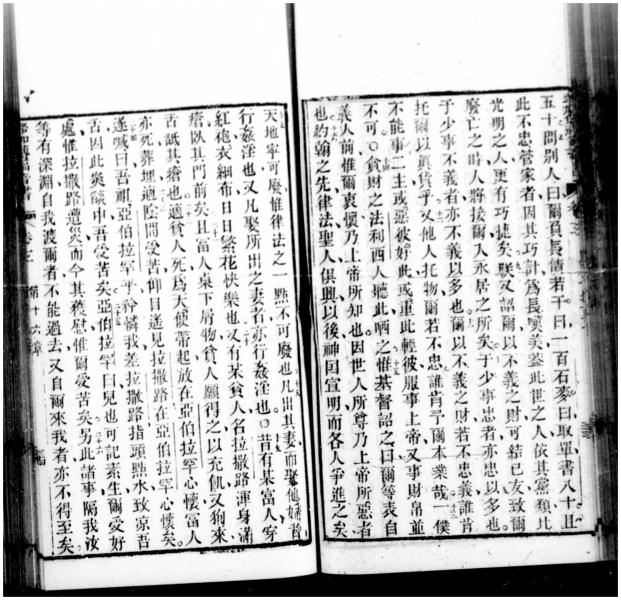 五十問別人曰爾負長債若干曰一百石麥曰取單書八十且
此不忠管家者因其巧計為長嘆美蓋此世之人依其黨類比
光明之人更有巧捷矣朕又詔爾以不義之財可結已友致爾
廢亡之時人將接爾入永居之所矣于少事忠者亦忠以多也
于少事不義者亦不義以多也爾以不義之財若不忠義誰肯
托爾以眞貨乎又他人托物爾若不忠誰肯予爾本業哉一僕
不能事二主或惡彼好此或重此輕彼服事上帝又事財帛並
不可○貪財之法利西人聽此哂之惟基督詔之曰爾等表自
義人前惟爾衷懷乃上帝所知也因世人所尊乃上帝所惡者
也約翰之先律法聖人俱興以後神囯宣明而各人爭進之矣
天地寧可廢惟律法之一點不可廢也凡出其妻而聚他婦者
行姦淫也又凡娶所出之妻者亦行姦淫也○昔有某富人穿
紅袍衣細布日日繁花快樂也又有某貧人名拉撒路渾身滿
瘡臥其門前矣且富人桌下屑物貧人願得之以充飢又狗來
舌舐其瘡也適貧人死為天使帶起放在亞伯拉罕心懷富人
亦死葬埋適陰間受苦仰目遙見拉撒路在亞伯拉罕心懷矣
遂喊曰吾祖亞伯拉罕乎矜憐我差拉撒路指頭㸃水致凉吾
舌因此炎𦦨中吾受苦矣亞伯拉罕曰兒也可記素生爾受好
處惟拉撒路遭災而今其穫慰惟爾受苦矣另此諸事隔我汝
等有深淵自我渡爾者不能過去又自爾來我者亦不得至矣
第十六章